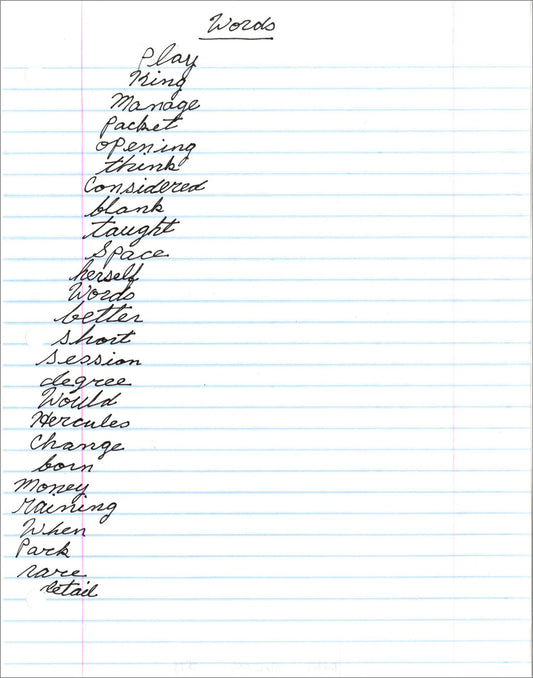 Words
Play
King
Manage
Packet
opening
think
Considered
blank
taught
Space
herself
Words
better
short
session
degree
Would
Hercules
Change
born
Money
raining
When
Park
rare
detail